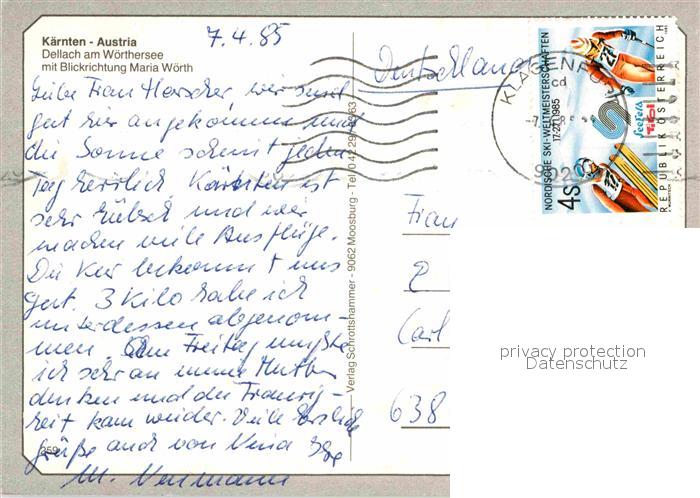 Kärnten - Austria
Dellach am Wörthersee
mit Blickrichtung Maria Wörth
7.4.85
Liebe Frau Herscher wir sind
gut hier angekommen und
die Sonne scheint jeden
Tag herrlich Kärnten ist
sehr hübsch und wir
machen viele Ausflüge.
Die Kur bekommt uns
gut. 3 Kilo habe ich
unterdessen abgenom-
men. Am Freitag mußte
ich sehr an meine Mutter
denken und die Traurig-
keit kam wieder. Viele herzliche
Grüße auch von Nina Ihre
M. Neumann
259
Verlag Schrottshammer - 9062 Moosburg - Tel 0 42 29
Deutschland
KLAGENFURT
NORDISCHE SKI-WELTMEISTERSCHAFTEN
17-27.1.1985
4S
Seefeld
Tirol
REPUBLIK ÖSTERREICH
Frau
Carl
638
privacy protection
Datenschutz